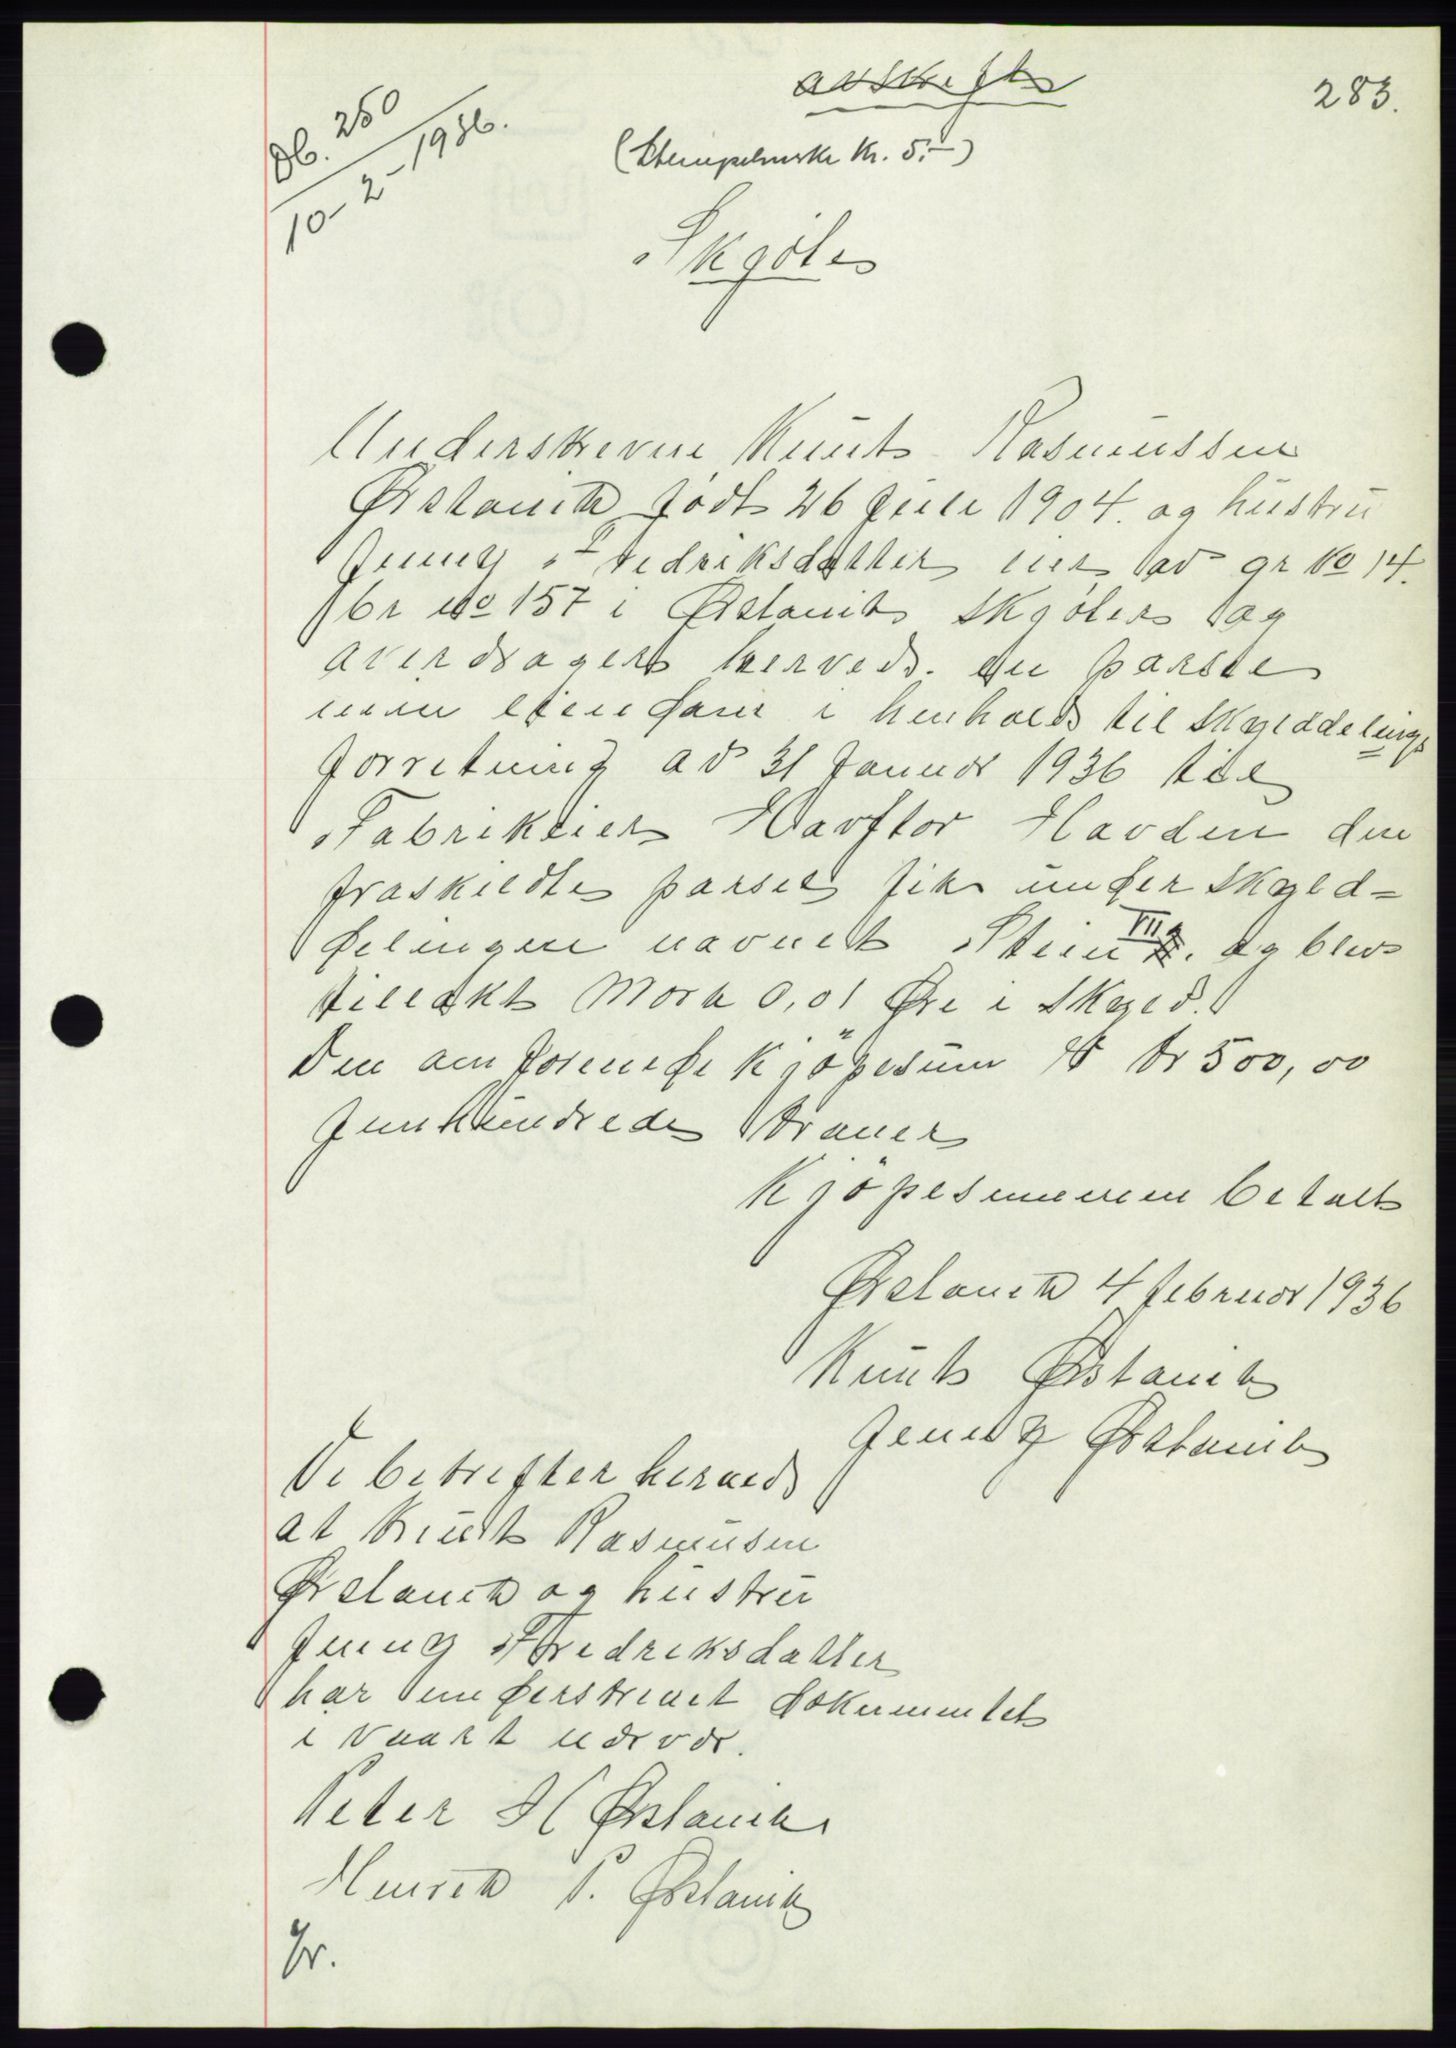 283.
Db. 250
10-2-1936.
avskrift
(Stempelmerke kr. 5.-)
Skjøte
Underskrevne Knut Rasmussen
Ørstavik født 26 Juli 1904. og hustru
Jenny Fredriksdatter eier av gr No 14.
br no 157 i Ørstavik skjøter og
averdrager herved. en parsel
min eiendom i henhold til skylddelings
forretning av 31 Januar 1936 til
Fabrikeier Havtor Hovden den
fraskildte parsel fik under skyld=
delingen navnet Stein VII. og blev
tillakt Mork 0,01 Øre i skyld.
Den omforenede kjöpesum kr 500,00
femhundrede kroner
Kjöpesummen betalt
Ørstavik 4 februar 1936
Knut Ørstavik
Jenny Ørstavik
Vi betrefter herved
at Knut Rasmusen
Ørstavik og hustru
Jenny Fredriksdatter
har underskrevet dokumentet
i vaart nærvær.
Peter H Ørstavik
Henrik P. Ørstavik